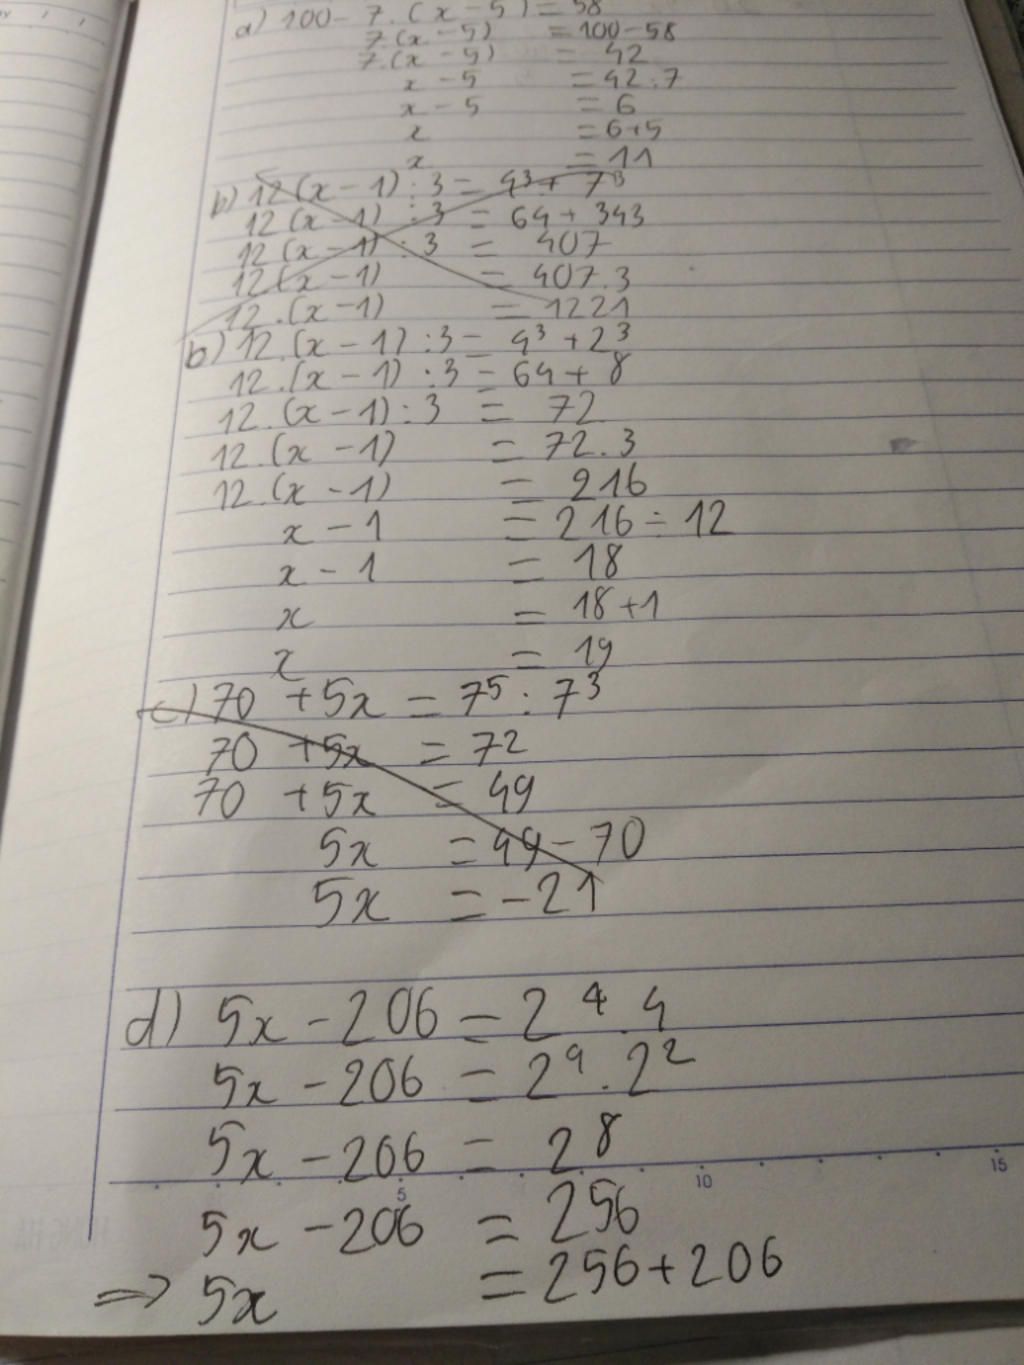 a) 100 - 7.(x - 5) = 58
7.(x - 5) = 100 - 58
7.(x - 5) = 42
x - 5 = 42:7
x - 5 = 6
x = 6+5
x = 11
b) 12(x - 1) : 3 = 4³ + 7³
12.(x - 1) : 3 = 64 + 343
12(x - 1) : 3 = 407
12(x - 1) = 407.3
12.(x - 1) = 1221
b) 12.(x - 1) : 3 = 4³ + 2³
12.(x - 1) : 3 = 64 + 8
12.(x - 1) : 3 = 72
12.(x - 1) = 72.3
12.(x - 1) = 216
x - 1 = 216 ÷ 12
x - 1 = 18
x = 18 + 1
x = 19
c) 70 + 5x = 7⁵ : 7³
70 + 5x = 72
70 + 5x = 49
5x = 49 - 70
5x = -21
d) 5x - 206 = 2⁴.4
5x - 206 = 2⁴.2²
5x - 206 = 2⁸
5 10 15
5x - 206 = 256
=> 5x = 256 + 206